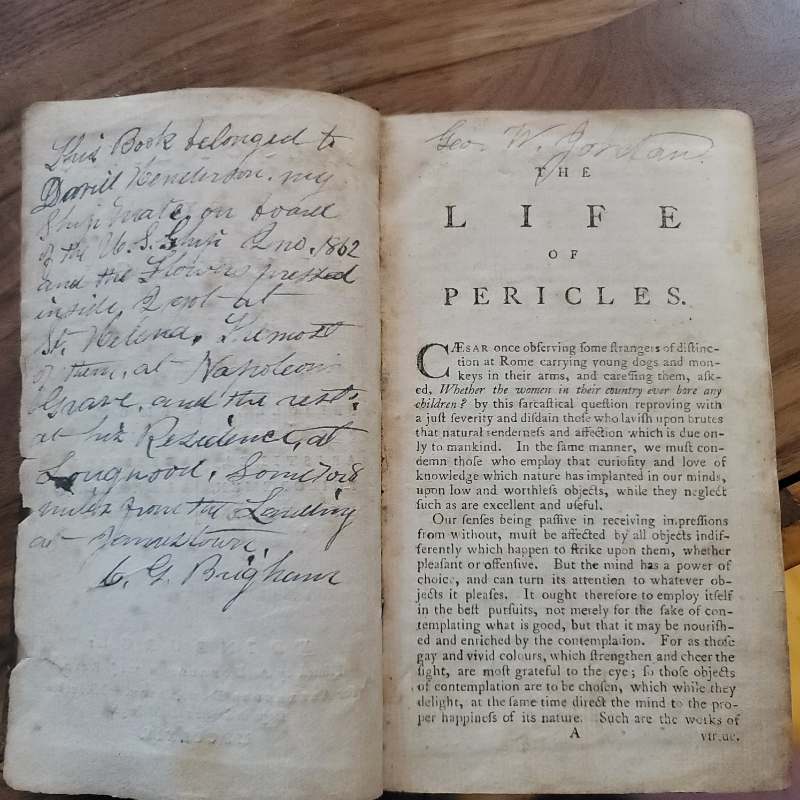 This Book belonged to
David Henderson. my
Ship mate, on board
of the U.S. Ship 2nd. 1862
and the Flowers pressed
inside, I got at
St. Helena,
of them, at Napoleons
Grave, and the rest
at his Residence, at
Longwood, Some
miles from the Landing
at Jamestown
C. G. Brigham
Geo. W. Jordan.
THE
LIFE
OF
PERICLES.
CÆSAR once obſerving ſome ſtrangers of diſtinc-
tion at Rome carrying young dogs and mon-
keys in their arms, and careſſing them, aſk-
ed, Whether the women in their country ever bore any
children? by this ſarcaſtical queſtion reproving with
a juſt ſeverity and diſdain thoſe who laviſh upon brutes
that natural tenderneſs and affection which is due on-
ly to mankind. In the ſame manner, we muſt con-
demn thoſe who employ that curioſity and love of
knowledge which nature has implanted in our minds,
upon low and worthleſs objects, while they neglect
ſuch as are excellent and uſeful.
Our ſenſes being paſſive in receiving impreſſions
from without, muſt be affected by all objects indif-
ferently which happen to ſtrike upon them, whether
pleaſant or offenſive. But the mind has a power of
choice, and can turn its attention to whatever ob-
jects it pleaſes. It ought therefore to employ itſelf
in the beſt purſuits, not merely for the ſake of con-
templating what is good, but that it may be nouriſh-
ed and enriched by the contemplation. For as thoſe
gay and vivid colours, which ſtrengthen and cheer the
ſight, are moſt grateful to the eye; ſo thoſe objects
of contemplation are to be choſen, which while they
delight, at the ſame time direct the mind to the pro-
per happineſs of its nature. Such are the works of
A
virtue,